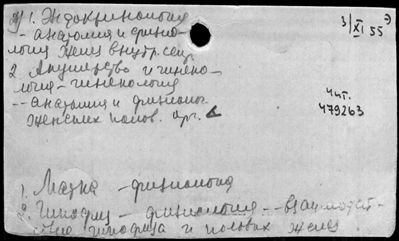 1. Эндокринология
- анатомия и физио-
логия желез внутр. сек.
3/XI 55
2. Акушерство и гинеко-
логия - гинекология
-- анатомия и физиолог.
женских полов. орг.
Чит.
479263
1. Матка - физиология
2. Гипофиз - физиология -- взаимодей-
ствие гипофиза и половых желез